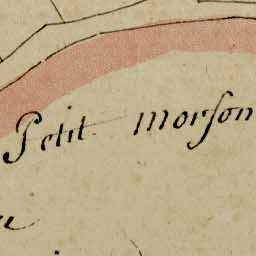 Petit morſon